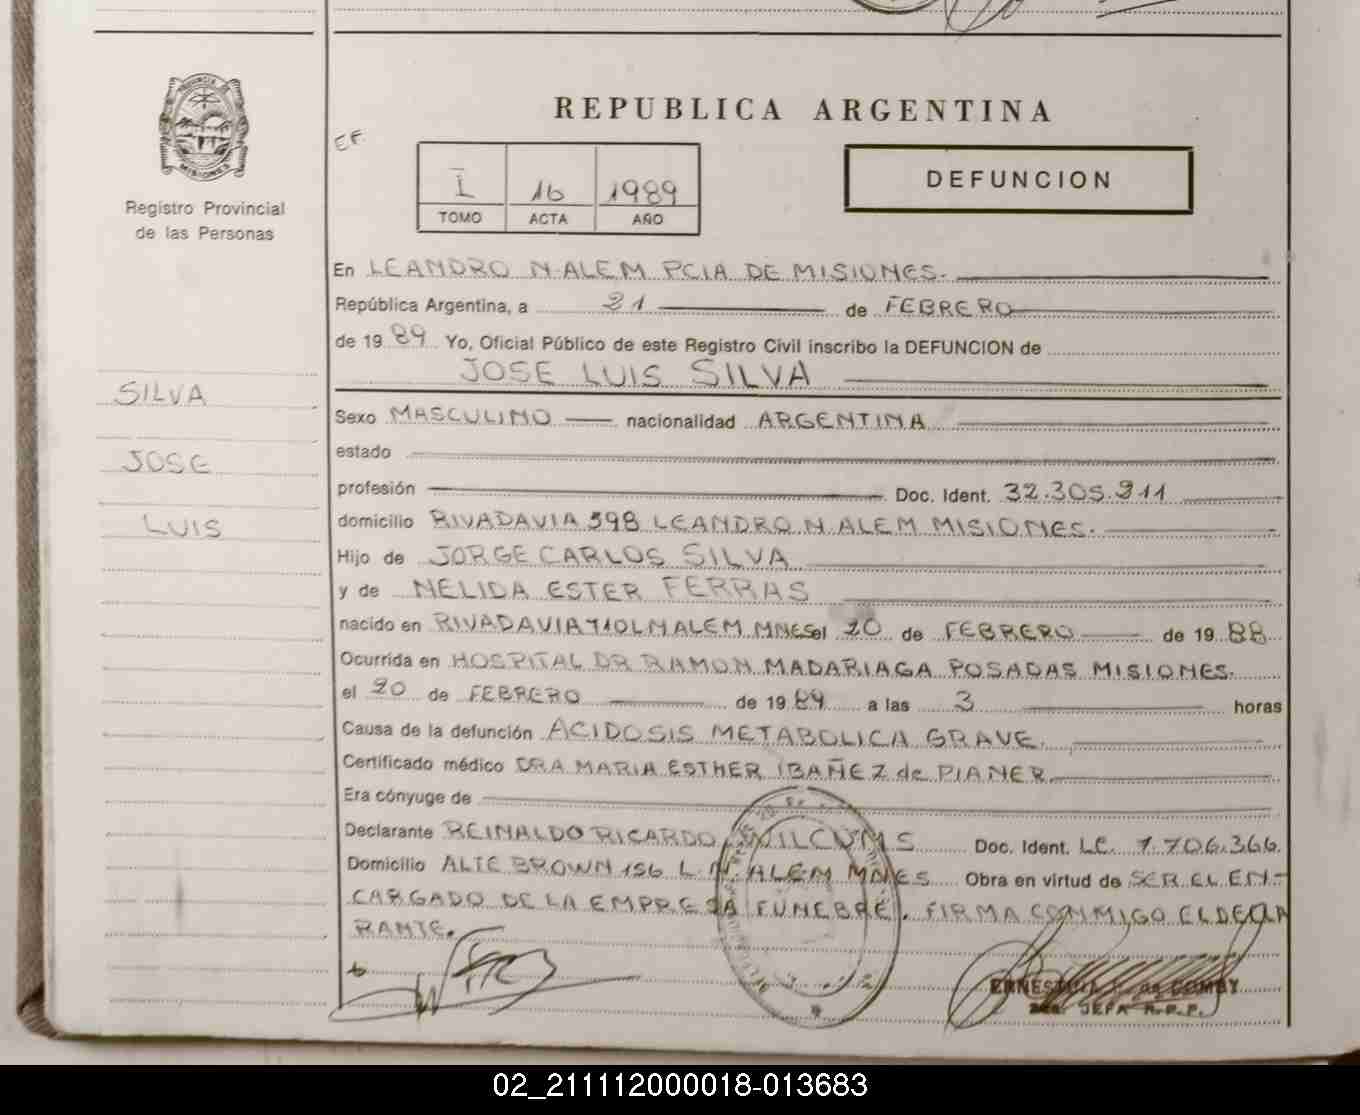 PROVINCIA DE
MISIONES
Registro Provincial
de las Personas
SILVA
JOSE
LUIS
REPUBLICA ARGENTINA
EF.
I 16 1989
TOMO ACTA AÑO
DEFUNCION
En LEANDRO N. ALEM PCIA DE MISIONES.
República Argentina, a 21 de FEBRERO
de 1989 Yo, Oficial Público de este Registro Civil inscribo la DEFUNCION de
JOSE LUIS SILVA
Sexo MASCULINO nacionalidad ARGENTINA
estado
profesión Doc. Ident. 32.305.911
domicilio RIVADAVIA 598 LEANDRO N ALEM MISIONES.
Hijo de JORGE CARLOS SILVA
y de NELIDA ESTER FERRAS
nacido en RIVADAVIA 710 L N ALEM MNES el 20 de FEBRERO de 1988
Ocurrida en HOSPITAL DR RAMON MADARIAGA POSADAS MISIONES.
el 20 de FEBRERO de 1989 a las 3 horas
Causa de la defunción ACIDOSIS METABOLICA GRAVE.
Certificado médico DRA MARIA ESTHER IBAÑEZ de PIANER
Era cónyuge de
Declarante REINALDO RICARDO WILCUMS Doc. Ident. LE. 7.706.366.
Domicilio ALTE BROWN 156 L. N. ALEM MNES Obra en virtud de SER EL EN-
CARGADO DE LA EMPRESA FUNEBRE. FIRMA CONMIGO EL DECLA
RANTE.
JEFA R.P.P.
02_211112000018-013683